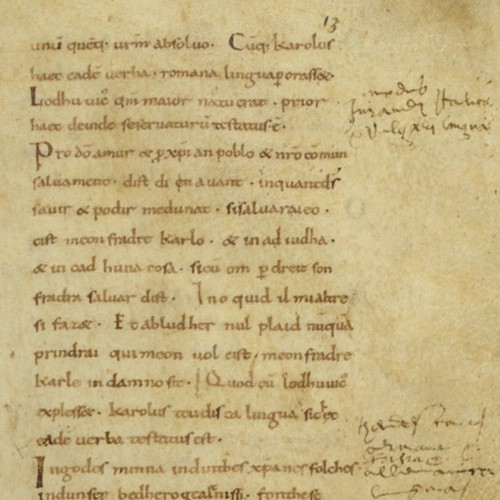 13
unū quēq; urm̄ absoluo. Cūq; karolus
haec eadē uerba romana lingua perorass&.
Lodhuuic̄ qm̄ maior natu erat. prior
haec deinde se seruaturū testatus ē.
Pro dō amur & p xp̄ian poblo & nr̄o cōmun
saluament. dist di en auant. inquantdś
sauir & podir medunat. sisaluaraieo.
cist meon fradre karlo. & in ad iudha.
& in cad huna cosa. sicū om p dreit son
fradra saluar dist. Ino quid il mialtre
si faz&. Et abludher nul plaid nūquā
prindrai qui meon uol cist. meonfradre
karle in damno sit. Quod cū lodhuuic̄
expless&. karolus teudisca lingua sic hec
eadē uerba testatus est.
Ingodes minna indinthes xp̄anes folches
indunser bedhero gealtnissi. fonthese